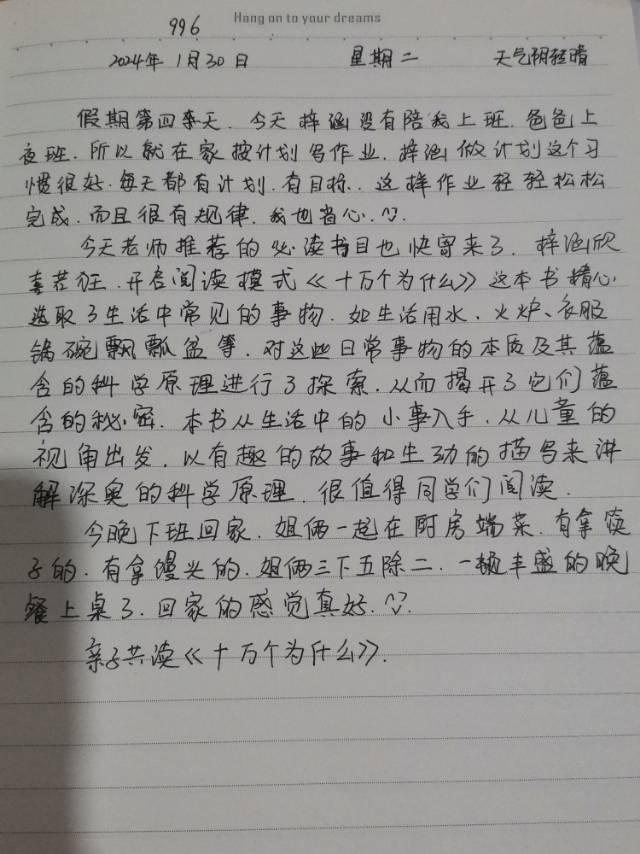 Hang on to your dreams
996
2024年1月30日 星期二 天气阴转晴
假期第四天.今天梓涵没有陪我上班.爸爸上
夜班.所以就在家按计划写作业.梓涵做计划这个习
惯很好.每天都有计划.有目标.这样作业轻轻松松
完成.而且很有规律.我也省心.
今天老师推荐的必读书目也快寄来了.梓涵欣
喜若狂.开启阅读模式《十万个为什么》这本书精心
选取了生活中常见的事物.如生活用水.火炉、衣服
锅碗瓢盆等.对这些日常事物的本质及其蕴
含的科学原理进行了探索.从而揭开了它们蕴
含的秘密.本书从生活中的小事入手.从儿童的
视角出发.以有趣的故事和生动的描写来讲
解深奥的科学原理.很值得同学们阅读.
今晚下班回家.姐俩一起在厨房端菜.有拿筷
子的.有拿馒头的.姐俩三下五除二.一桌丰盛的晚
餐上桌了.回家的感觉真好.
亲子共读《十万个为什么》.